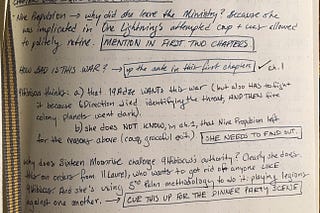 • Nine Propulsion → why did she leave the Ministry? Because she
was implicated in One Lightning's attempted coup + was allowed
to politely retire. MENTION IN FIRST TWO CHAPTERS
HOW BAD IS THIS WAR? → up the ante in this first chapters ✓ ch.1
9Hibiscus thinks: a) that 19Adze WANTS this war (but also HAS to fight
it because 6Direction died identifying the threat, AND THEN five
colony planets went dark).
b) she does NOT KNOW, in ch.1, that Nine Propulsion left
for the reasons above (coup, graceful out). SHE NEEDS TO FIND OUT.
Why does Sixteen Moonrise challenge 9Hibiscus's authority? Clearly she does
this on orders from 11Laurel, who wants to get rid of anyone LIKE
9Hibiscus. And she's using 5th Palm methodology to do it: playing legions
against one another. → CUE THIS UP FOR THE DINNER PARTY SCENE